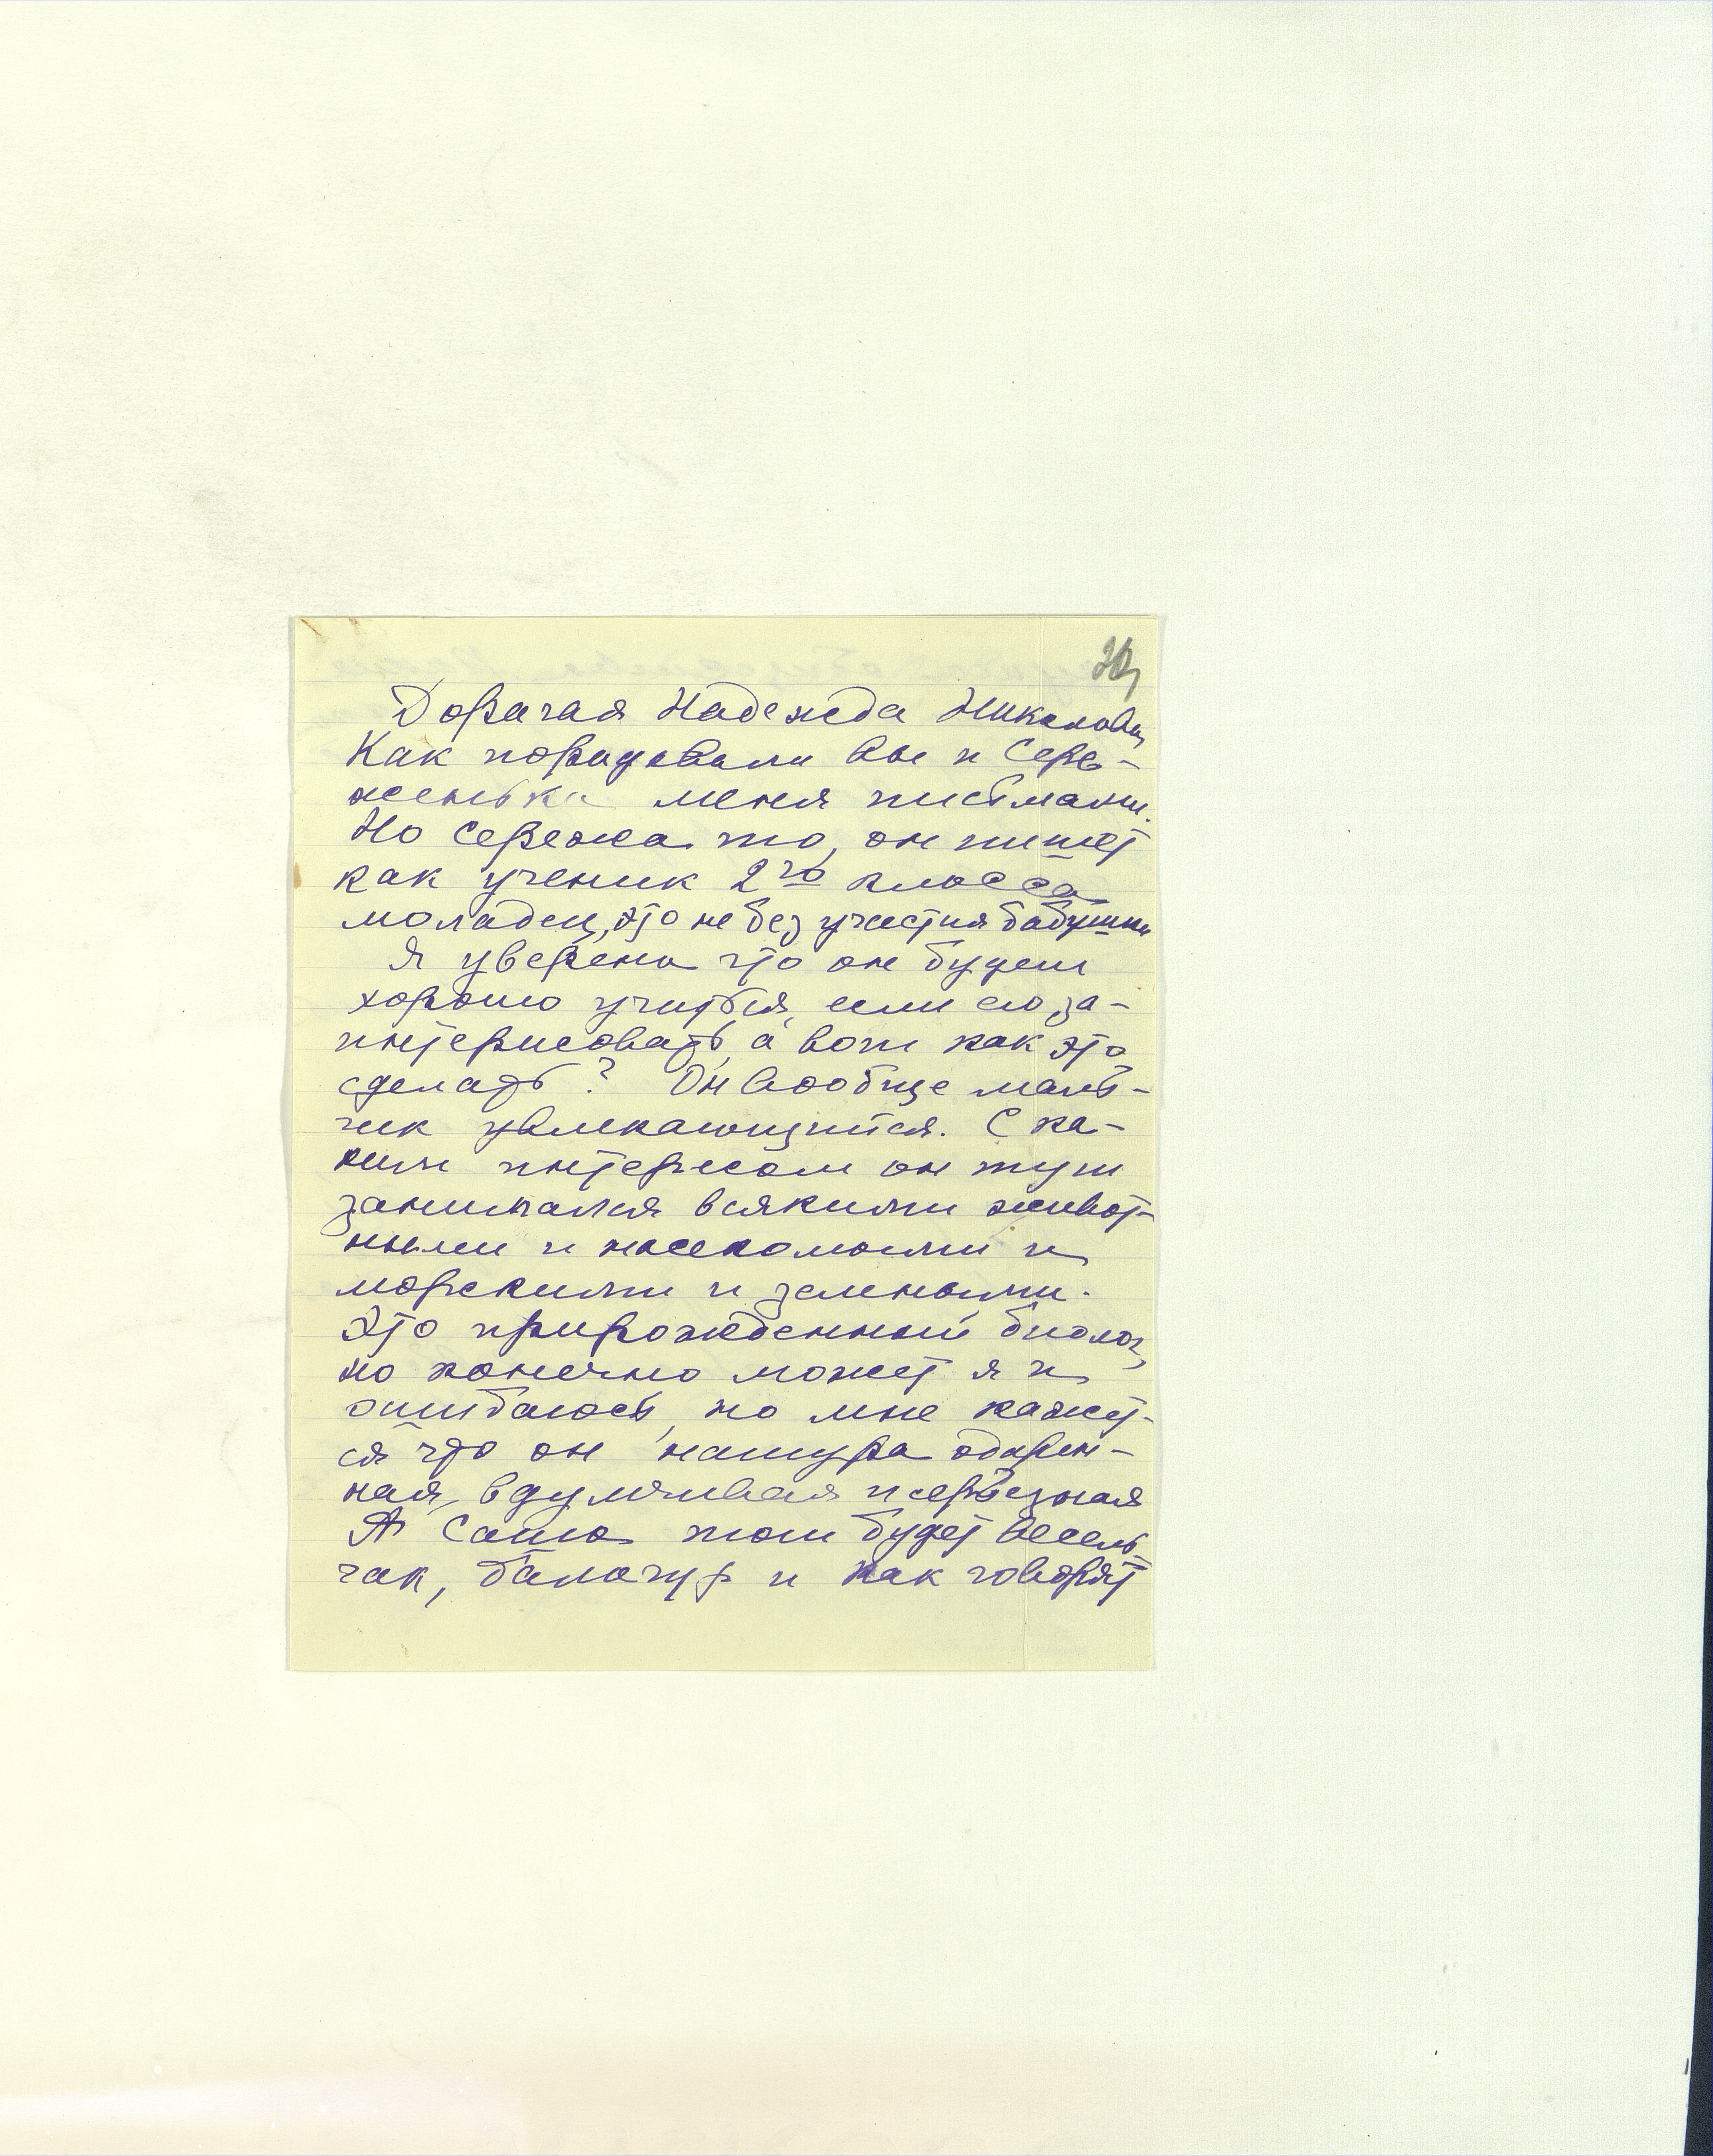 Дорагая Надежда Николаевн,
Как порадовали Вы и Сере-
женька меня письмами.
Но Сережа то, он пишет
как ученик 2го класса
моладец, это не без участия бабушки
Я уверена что он будет
хорошо учиться, если его за-
интерисовать, а вот как это
сделать? Он вообще маль-
чик увлекающийся. С ка-
ким интересом он тут
занимался всякими живот-
ными и насекомыми и
морскими и земными.
Это прирожденный биолог,
но конечно может я и
ошибаюсь, но мне кажет-
ся что он натура одарен-
ная, вдумчивая и серьезная
А Саша тот будет весель-
чак, балагур и как говорят